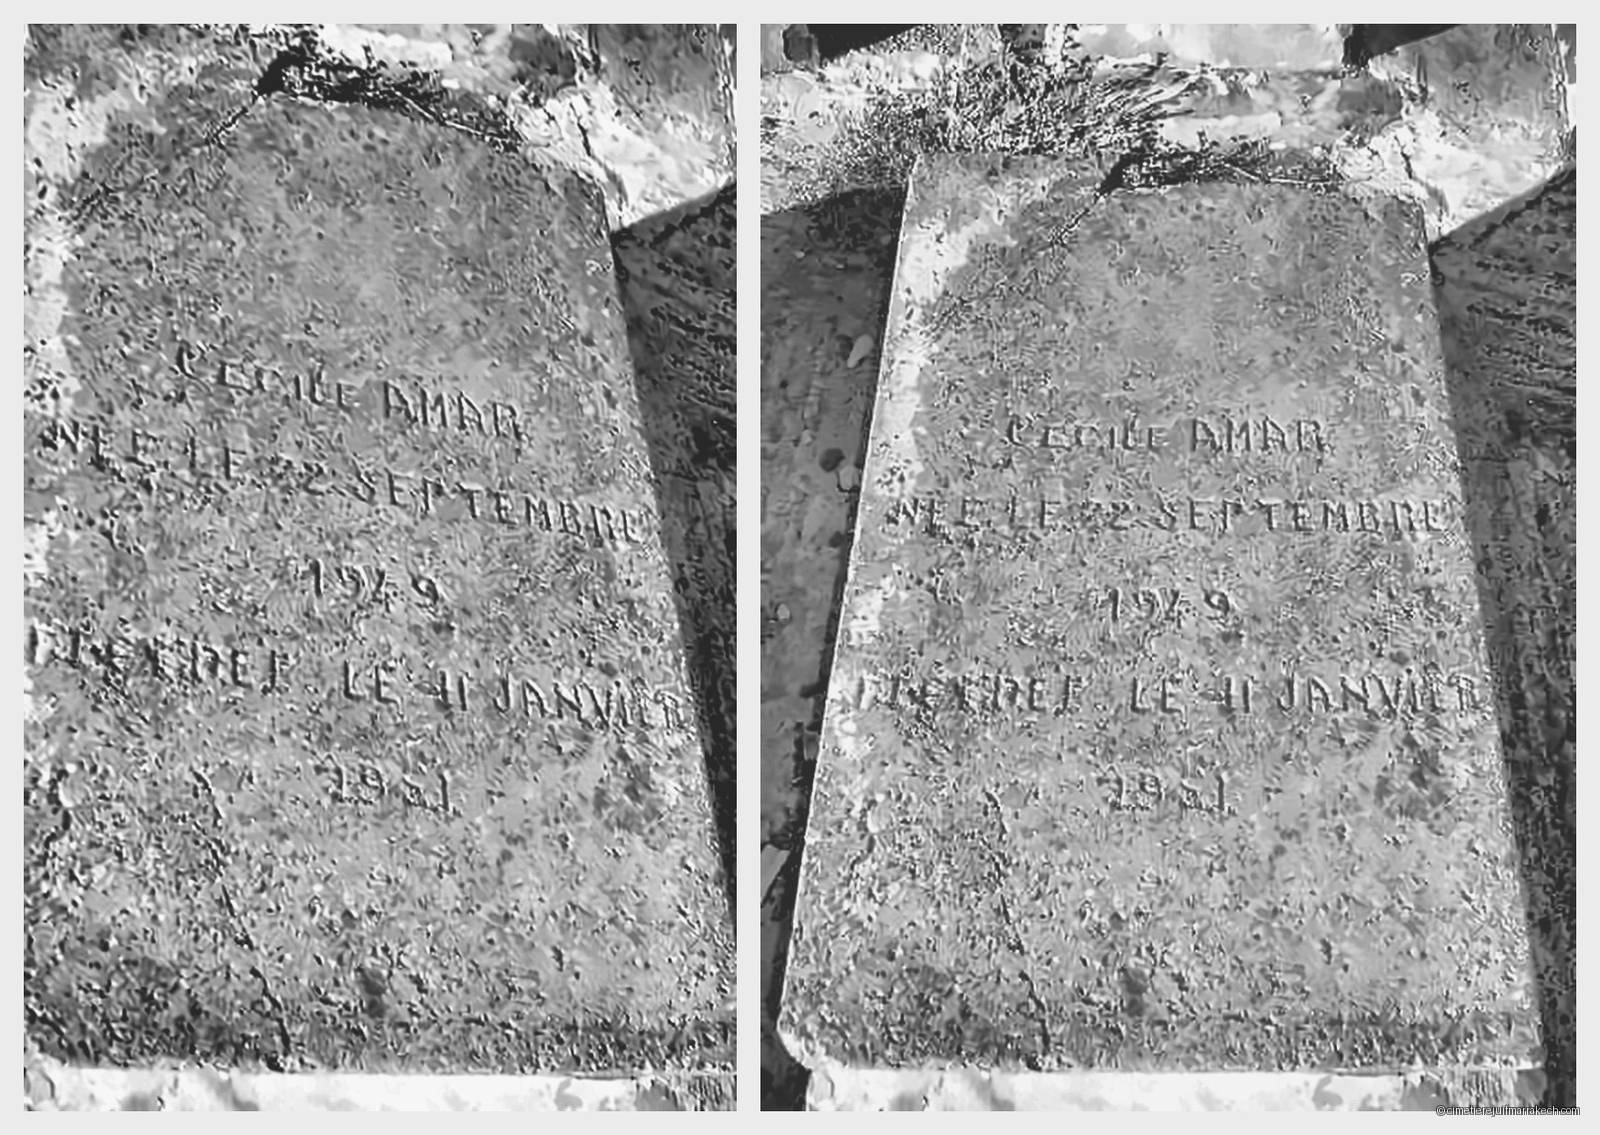 CECILE AMAR
NEE LE 22 SEPTEMBRE
1949
LE 11 JANVIER
1951
CECILE AMAR
NEE LE 22 SEPTEMBRE
1949
LE 11 JANVIER
1951
©cimetierejuifmarrakech.com